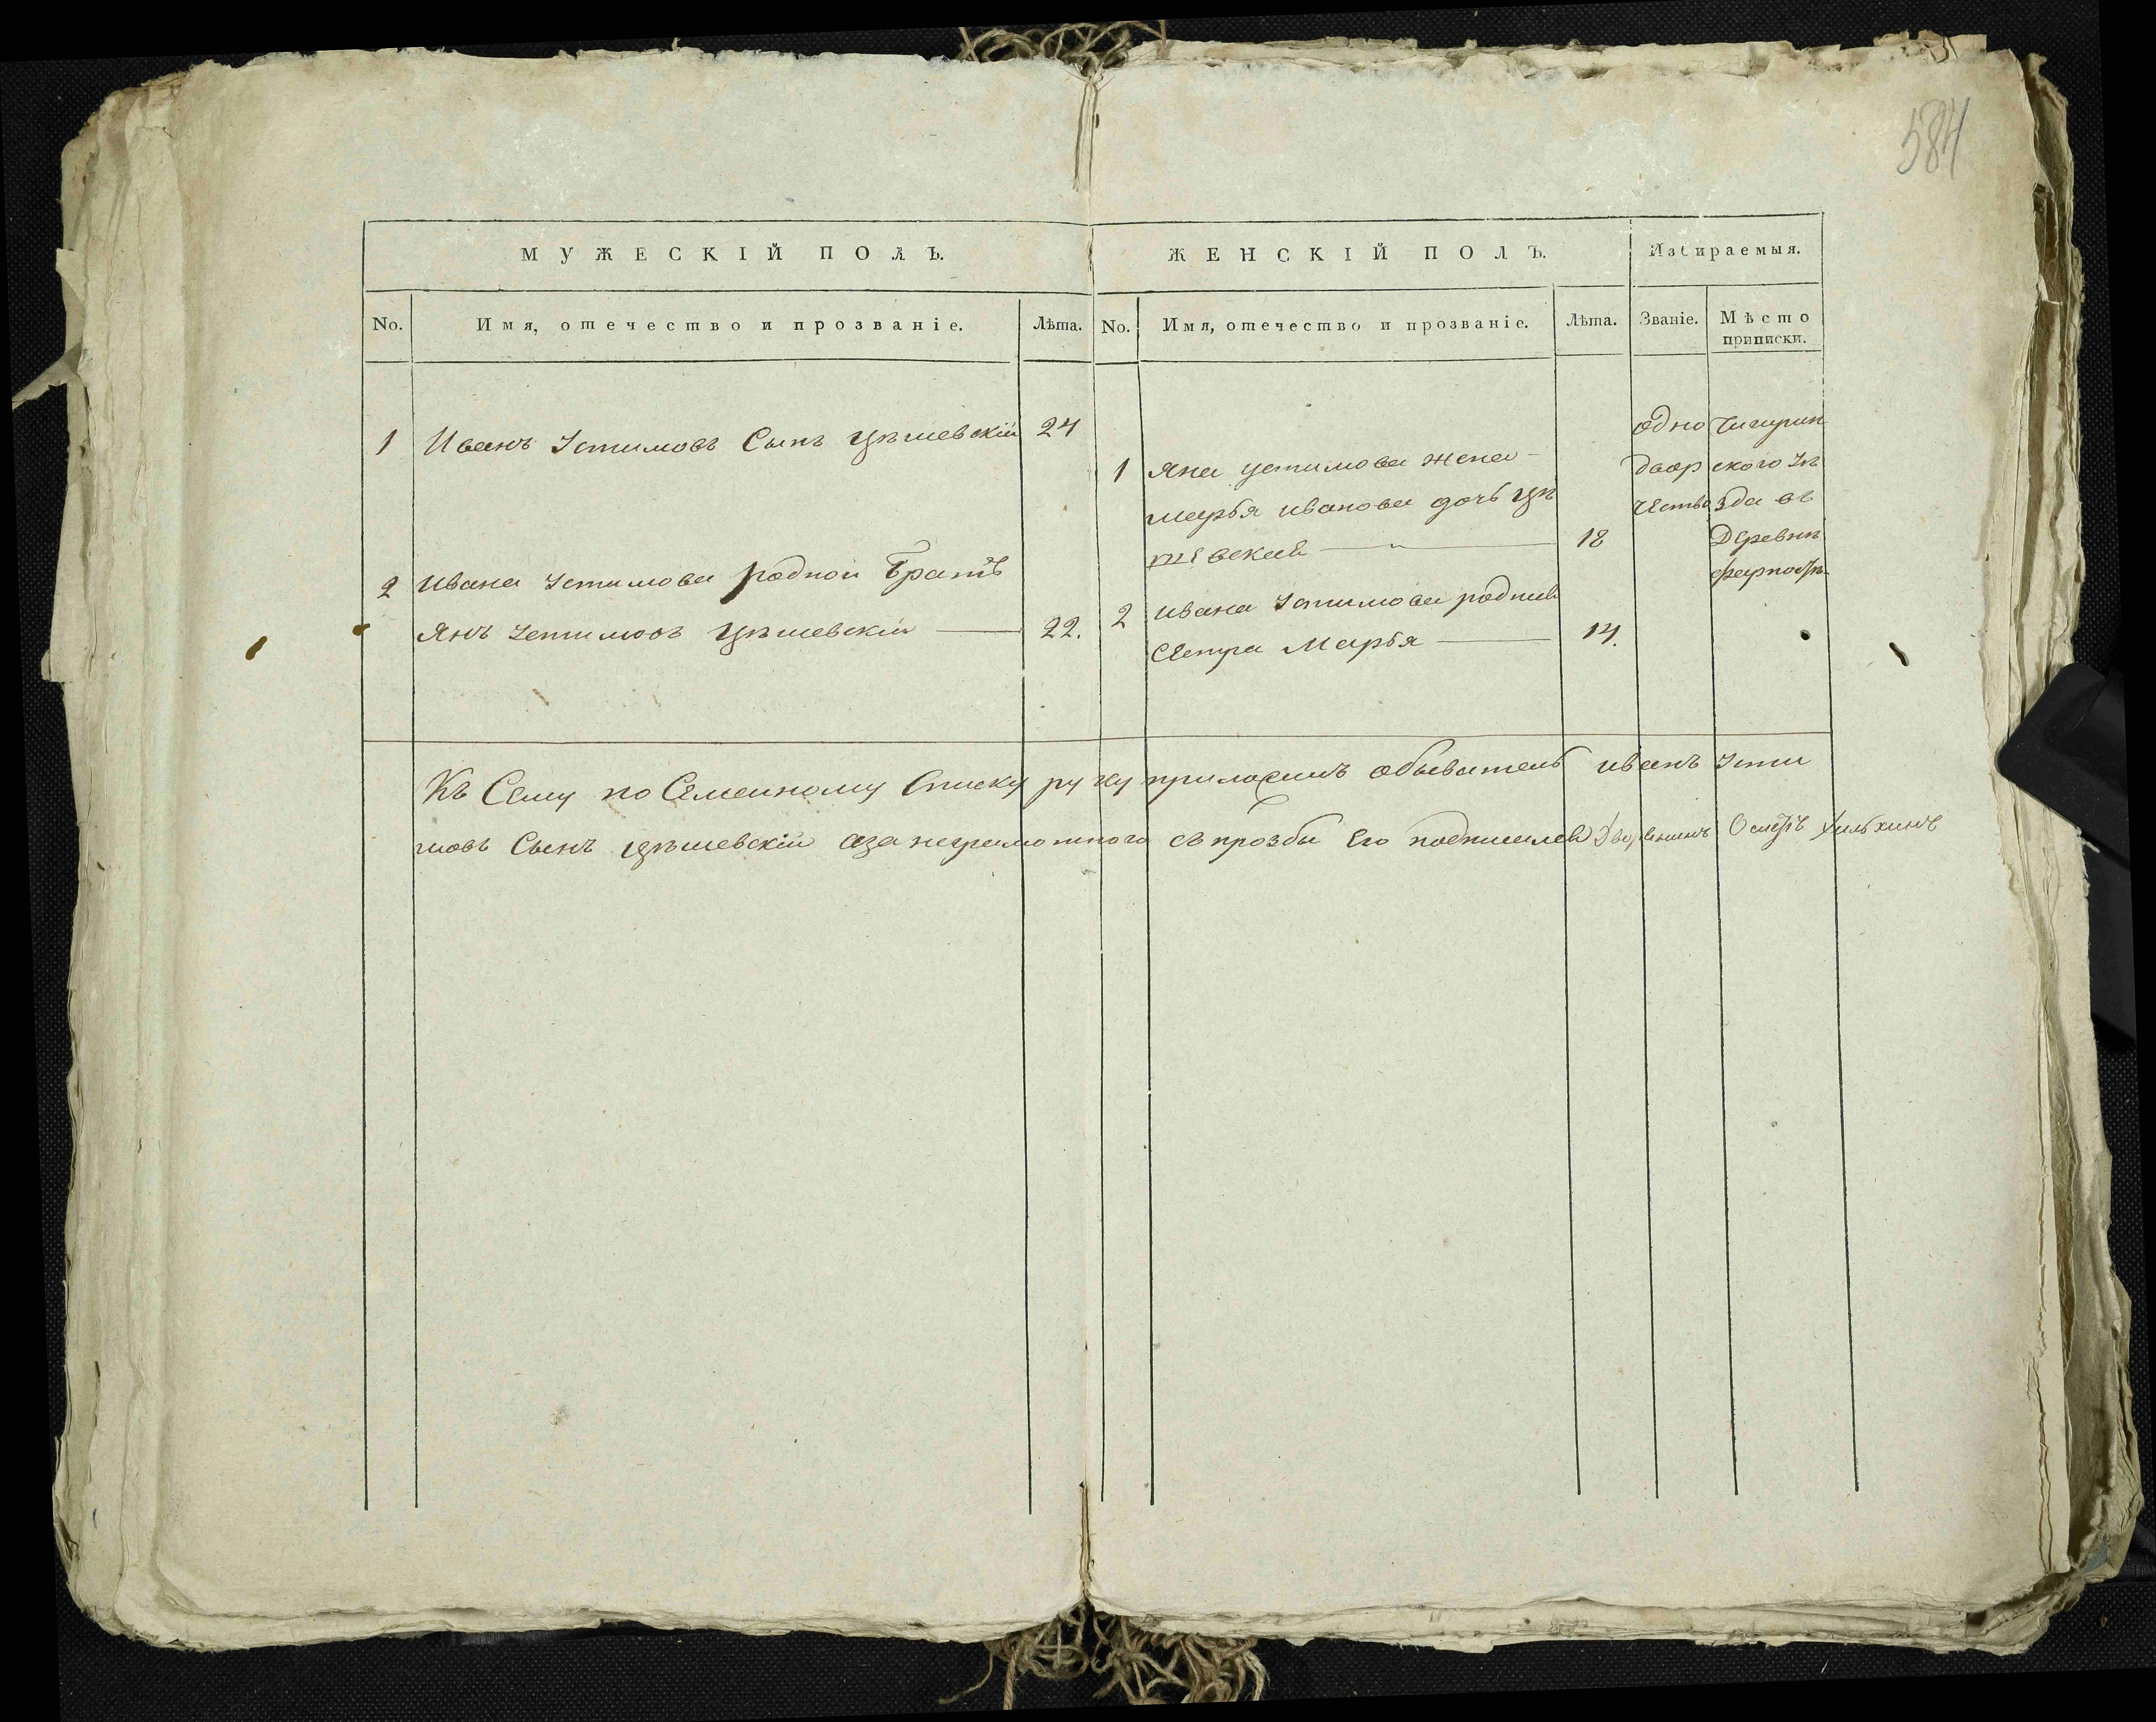 584
МУЖЕСКІЙ ПОЛЪ.
ЖЕНСКІЙ ПОЛЪ.
Избираемыя.
No.
Имя, отечество и прозваніе.
Лѣта.
No.
Имя, отечество и прозваніе.
Лѣта.
Званіе.
Мѣсто
приписки.
1 Иванъ Устимовъ Сынъ Цѣшевскій 24
2 Ивана Устимова родной Братъ
Янъ Устимовъ Цѣшевскій 22.
1 Яна устимова жена
марья иванова дочь Цѣ
шевская 18
2 Ивана Устимова родная
Сестра Марья 14.
одно
двор
чество
Чигирин
ского Уѣ
зда въ
Деревнѣ
Къ Сему по Семейному Списку руку приложилъ обыватель иванъ Усти
мовъ Сынъ цѣшевскій а за неграмотного съ прозбы Его подписался Дворянинъ